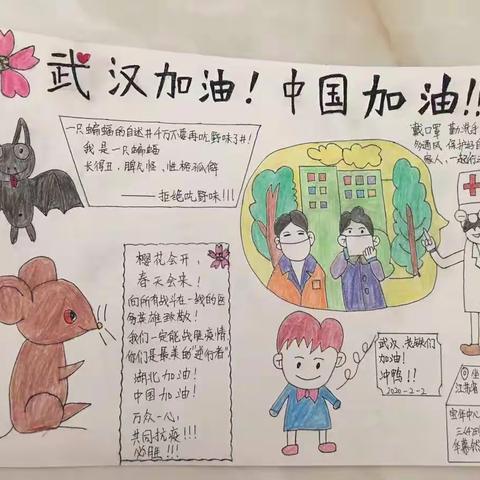 武汉加油！中国加油!!
一只蝙蝠的自述#千万不要再吃野味了#!
我是一只蝙蝠
长得丑，脾气怪，性格孤僻
——拒绝吃野味!!!
戴口罩 勤洗手
多通风 保护好自
家人，一起行
樱花会开，
春天会来！
向所有战斗在一线的医
务英雄致敬！
我们一定能战胜疫情
你们是最美的"逆行者"
湖北加油！
中国加油！
万众一心，
共同抗疫!!!
必胜!!!
武汉，老铁们
加油！
冲鸭!!
2020-2-2
江苏省